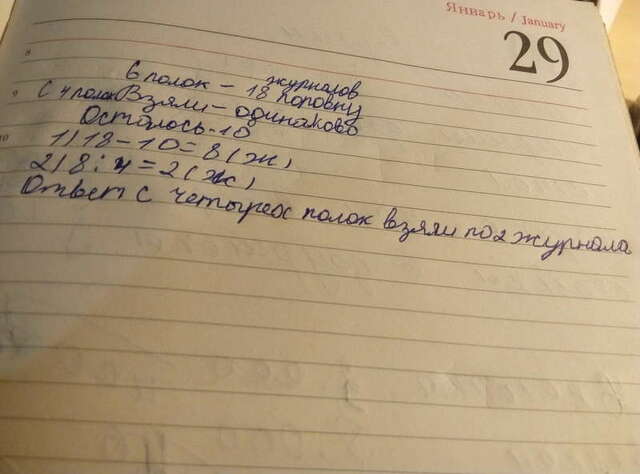 Январь / January
29
8
6 полок - 18 журналов поровну
9
С 4 полок Взяли - одинаково
Осталось - 10
10
1) 18 - 10 = 8 (ж)
2) 8 : 4 = 2 (ж)
Ответ С четырех полок взяли по 2 журнала